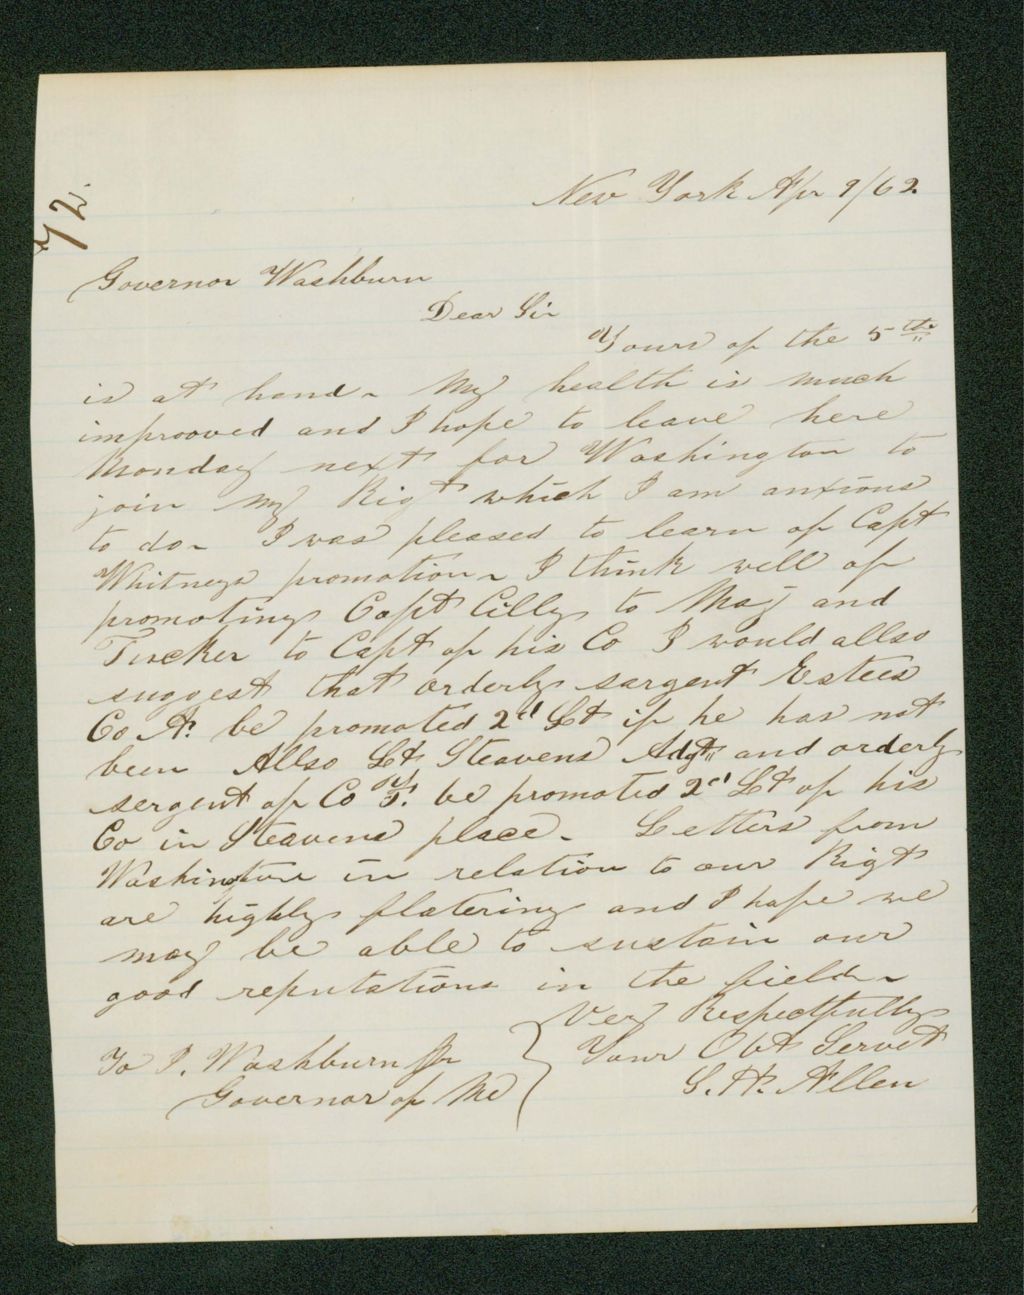 New York Apr 9/62
72.
Governor Washburn
Dear Sir
Yours of the 5th
is at hand - My health is much
improoved and I hope to leave here
Monday next for Washington to
join my Rigt which I am anxious
to do - I was pleased to learn of Capt
Whitneys promotion - I think well of
promoting Capt Cilly to Maj and
Tucker to Capt of his Co I would allso
suggest that orderly sargent Estees
Co A. be promoted 2d Lt if he has not
been Allso Lt Steavens Adgt and orderly
sergent of Co F. be promoted 2d Lt of his
Co in Steavens place - Letters from
Washington in relation to our Rigt
are highly flatering and I hope we
may be able to sustain our
good reputations in the field -
Very Respectfully
Your Obt Servt
S. H. Allen
To I. Washburn Jr
Governor of Me